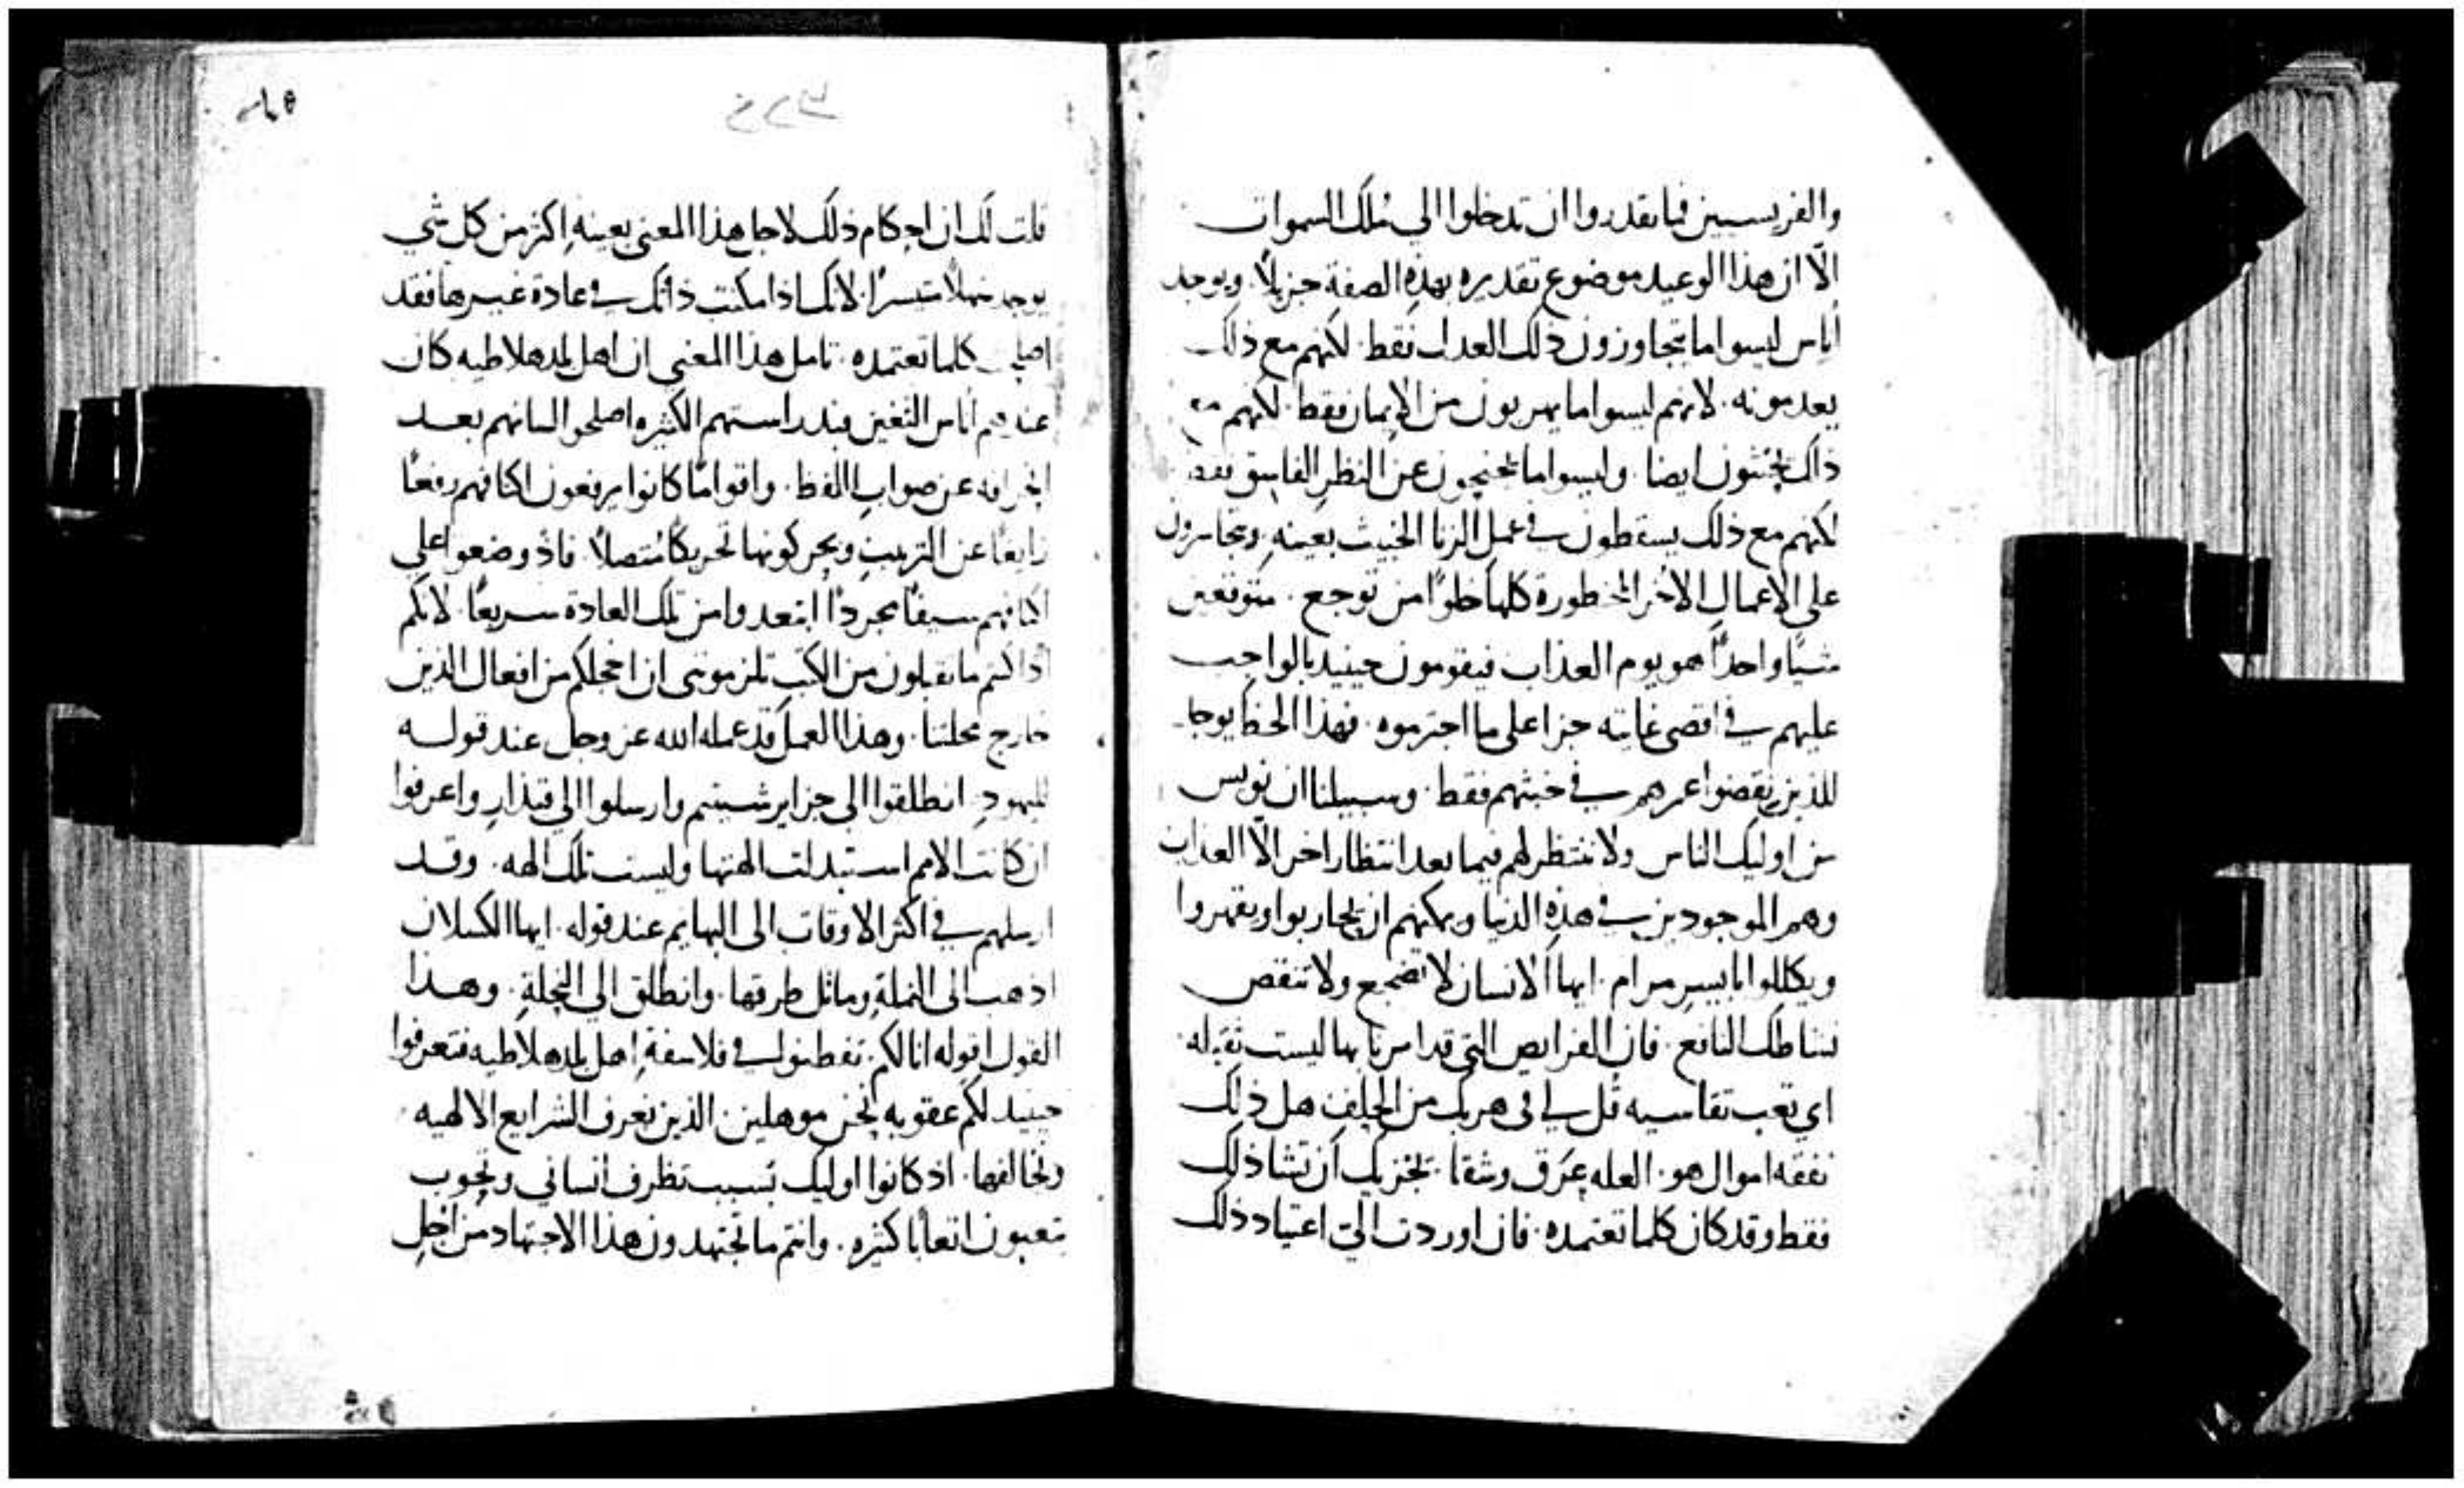 والفريسيين فما تقدروا ان تدخلوا الي ملك السموات
الّا ان هذا الوعيد موضوع تقديره بهذه الصفة جزيلًا ويوجد
أناس ليسوا ما يتجاوزون ذلك العداب فقط. لكنهم مع ذلك
يعدمونه. لانهم ليسوا ما يهربون من الايمان فقط. لكنهم مع
ذلك ايضا. وليسوا ما عن النظر الفاسق فقط
لكنهم مع ذلك يسقطون في عمل الزنا الخبيث بعينه ويتجاسرون
علي الاعمال الاخر المحظورة كلها خلوًا من توجع. متوقعين
شيًا واحدًا هو يوم العذاب فيقومون حينيد بالواجب
عليهم في اقصى غايته جزا علي ما اجترموه. فهذا الحظ يوجد
للذين نقضوا عمرهم في خبثهم فقط. وسبيلنا ان نويس
من اوليك الناس ولا ننتظر لهم فيما بعد انتظارا اخر الّا العذاب
وهم الموجودين في هذه الدنيا ويمكنهم ان يحاربوا ويقهروا
ويكللوا بايسر مرام. ايها الانسان لا تضجع ولا تنقص
نشاطك النافع. فان الفرايض التي قد امرنا بها ليست ثقيله.
اي تعب تقاسيه قل لي في هربك من الحلف هل ذلك
نفقه اموال هو. العله عرق وشقا. يجزيك ان تشا ذلك
فقط وقد كان كلما تعتمده. فان اوردت اليّ اعتياد ذلك
قلت لك ان احكام ذلك لاجل هذا المعنى بعينه اكثر من كل شي
يوجد سهلًا متيسرًا. لانك اذا مكنت ذاتك في عادة غيرها فقد
كلما تعتمده. تامل هذا المعنى ان اهل بلد هلاطيه كان
عندهم أناس الثغين فبدراستهم الكثيره اصلحوا لسانهم بعد
انحرافه عن صواب اللفظ. واقوامًا كانوا يرفعون اكتافهم رفعًا
زايغًا عن الترتيب ويحركونها تحريكًا متصلًا. فاذ وضعوا علي
اكتافهم سيفًا مجردًا ابتعدوا من تلك العادة سريعًا. لانكم
اذا كنتم ما تقبلون من الكتب تلزمونني ان اخجلكم من افعال الذين
خارج محلتنا. وهذا العمل قد عمله الله عز وجل عند قوله
لليهود. انطلقوا الى جزاير شيتيم وارسلوا الي قيدار واعرفوا
ان كانت الامم استبدلت الهتها وليست تلك الهه. وقد
ارسلهم في اكثر الاوقات الى البهايم عند قوله. ايها الكسلان
اذهب الى النملة وماثل طرقها. وانطلق الي النحلة. وهذا
القول اقوله انا لكم. تفطنوا في فلاسفة اهل بلد هلاطيه فتعرفوا
حينيد لكم عقوبه نحن موهلين الذين نعرف الشرايع الالهيه.
ونخالفها. اذ كانوا اوليك بسبب تظرف انساني
يتعبون اتعابًا كثيره. وانتم ما تجتهدون هذا الاجتهاد من اجل